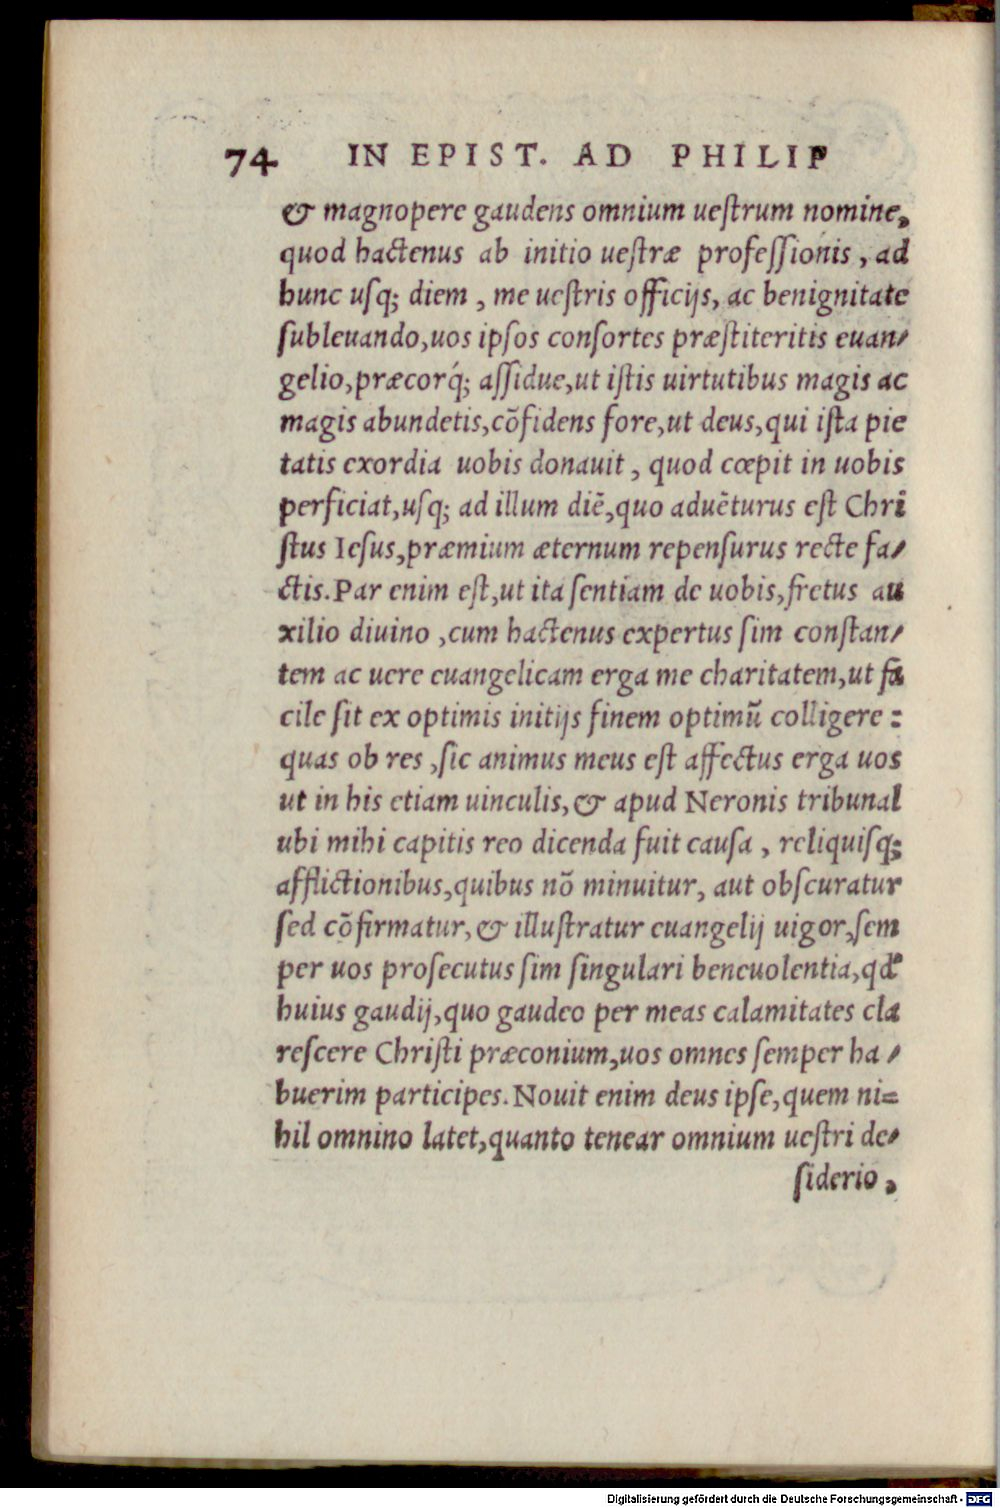 74 IN EPIST. AD PHILIP
& magnopere gaudens omnium ueſtrum nomine,
quod hactenus ab initio ueſtræ profeſſionis, ad
hunc uſq; diem, me ueſtris officijs, ac benignitate
ſubleuando, uos ipſos conſortes præſtiteritis euan-
gelio, præcorq́; aſſidue, ut iſtis uirtutibus magis ac
magis abundetis, cõfidens fore, ut deus, qui iſta pie
tatis exordia uobis donauit, quod cœpit in uobis
perficiat, uſq; ad illum diẽ, quo aduẽturus eſt Chri
ſtus Ieſus, præmium æternum repenſurus recte fa-
ctis. Par enim eſt, ut ita ſentiam de uobis, fretus au
xilio diuino, cum hactenus expertus ſim conſtan-
tem ac uere euangelicam erga me charitatem, ut fa
cile ſit ex optimis initijs finem optimũ colligere:
quas ob res, ſic animus meus eſt affectus erga uos
ut in his etiam uinculis, & apud Neronis tribunal
ubi mihi capitis reo dicenda fuit cauſa, reliquiſq;
afflictionibus, quibus nõ minuitur, aut obſcuratur
ſed cõfirmatur, & illuſtratur euangelij uigor, ſem
per uos proſecutus ſim ſingulari beneuolentia, qđ
huius gaudij, quo gaudeo per meas calamitates cla
reſcere Chriſti præconium, uos omnes ſemper ha-
buerim participes. Nouit enim deus ipſe, quem ni=
hil omnino latet, quanto tenear omnium ueſtri de-
ſiderio,
Digitalisierung gefördert durch die Deutsche Forschungsgemeinschaft - DFG